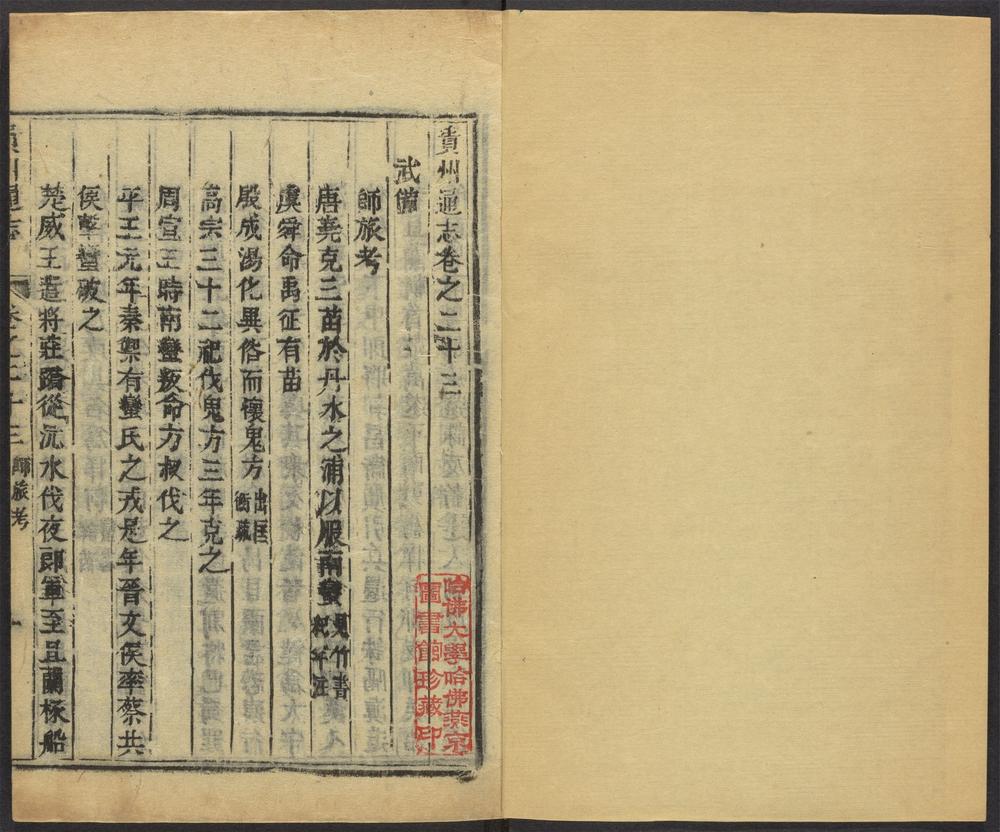 貴州通志卷之二十三
武備
師旅考
唐堯克三苗於丹水之浦以服南蠻見竹書紀年注
虞舜命禹征有苗
殷成湯化異俗而懷鬼方出匡衡疏
高宗三十二祀伐鬼方三年克之
周宣王時南蠻叛命方叔伐之
平王元年秦禦有蠻氏之戎是年晉文侯率蔡共
侯擊蠻破之
楚威王遣將莊蹻從沅水伐夜郎軍至且蘭椓船
貴州通志 卷之二十三 師旅考 一
哈佛大學哈佛燕京
圖書館珍藏印